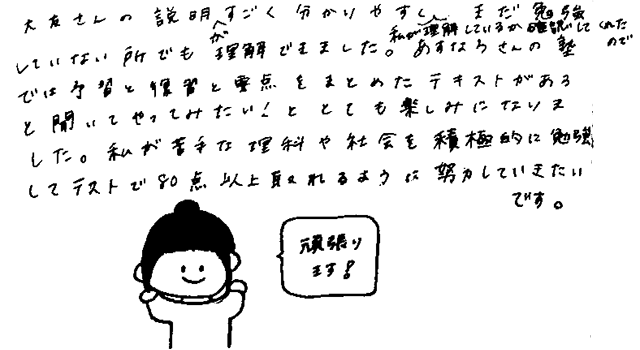 大友さんの説明がすごく分かりやすく、私が理解しているか確認してくれたのでまだ勉強
していない所でも理解できました。あすなろさんの塾
では予習と復習と要点をまとめたテキストがある
と聞いてやってみたい！ととても楽しみになりま
した。私が苦手な理科や社会を積極的に勉強
してテストで80点以上取れるように努力していきたい
です。
頑張り
ます!